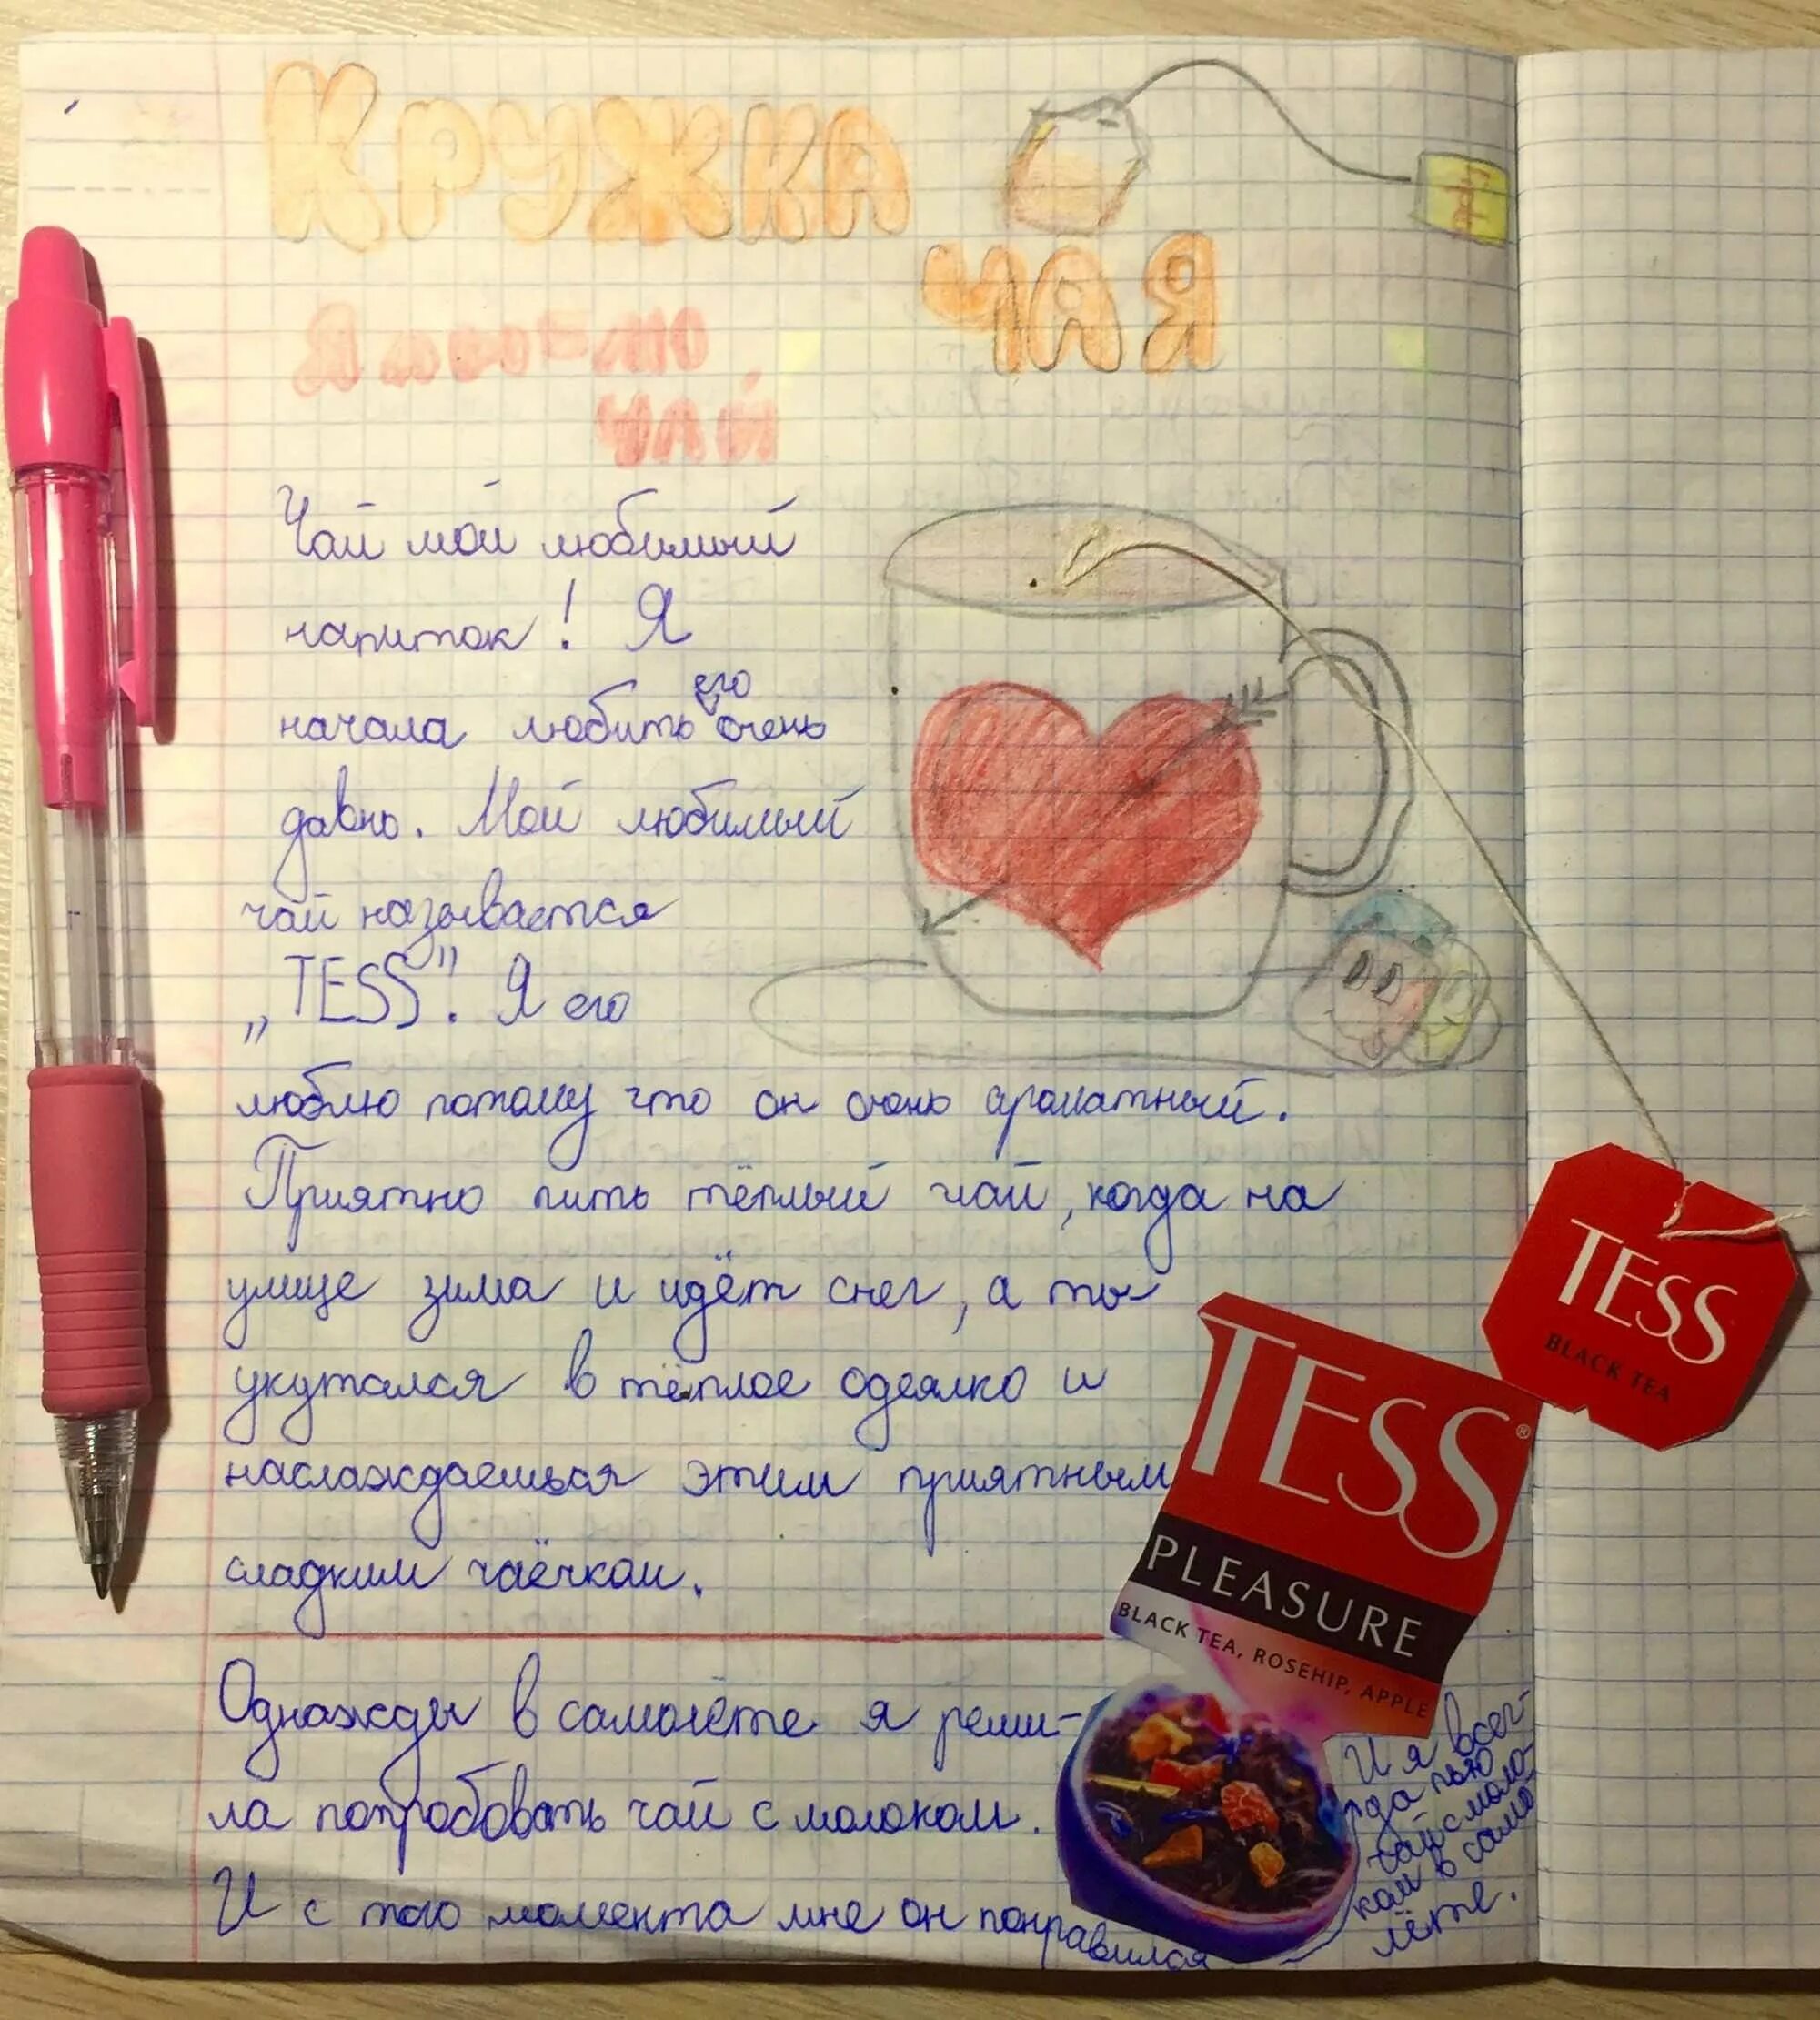 КРУЖКА
ЧАЯ
Я люб-лю
ЧАЙ
Чай мой любимый
напиток! Я
его
начала любить очень
давно. Мой любимый
чай называется
„TESS”. Я его
люблю потому что он очень ароматный.
Приятно пить тёплый чай, когда на
улице зима и идёт снег, а ты
укутался в тёплое одеялко и
наслаждаешься этим приятным
сладким чаёчком.
Однажды в самолёте я реши-
ла попробовать чай с молоком.
И с того момента мне он понравился
И я всег-
да пью
чай с моло-
ком в само
лёте.
TESS
BLACK TEA
TESS®
PLEASURE
BLACK TEA, ROSEHIP, APPLE